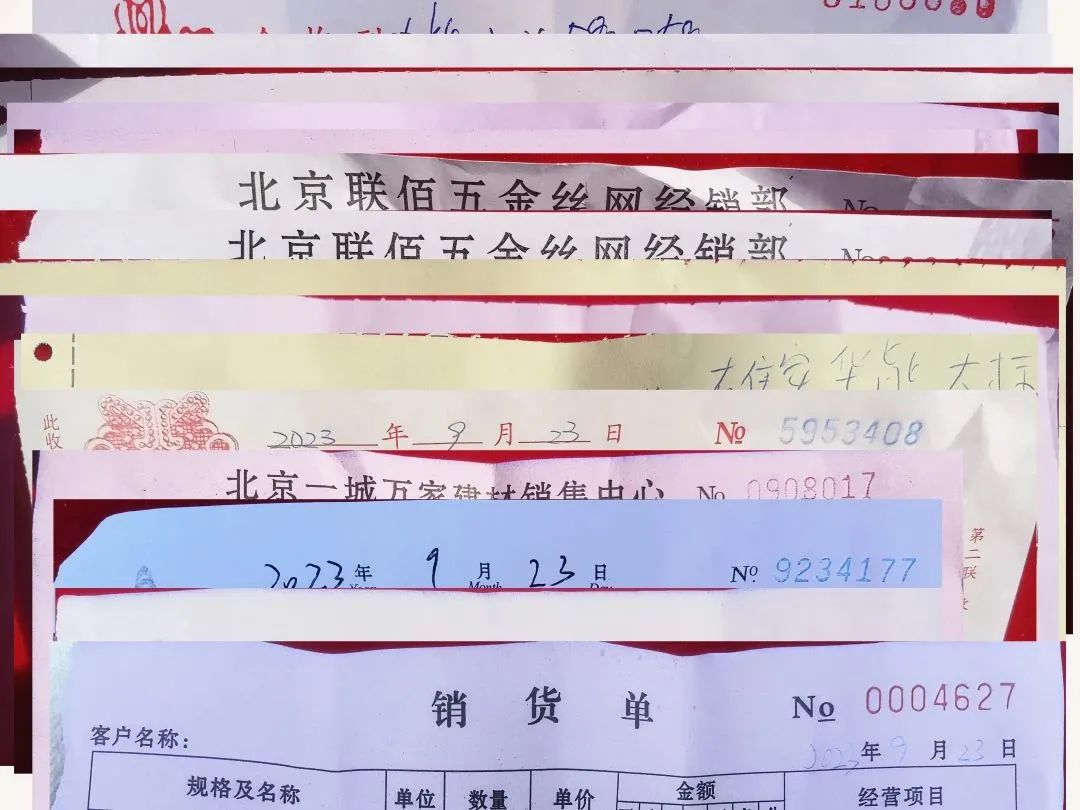 北京联佰五金丝网经销部 No
北京联佰五金丝网经销部 No
大住安 华能 大标
此收
2023 年 9 月 23 日 No 5953408
北京一城万家建材销售中心 No 0908017
第二联
2023 年 9 月 23 日 No 9234177
Year Month Day
销货单 No 0004627
客户名称:
2023 年 9 月 23 日
规格及名称 单位 数量 单价 金额 经营项目